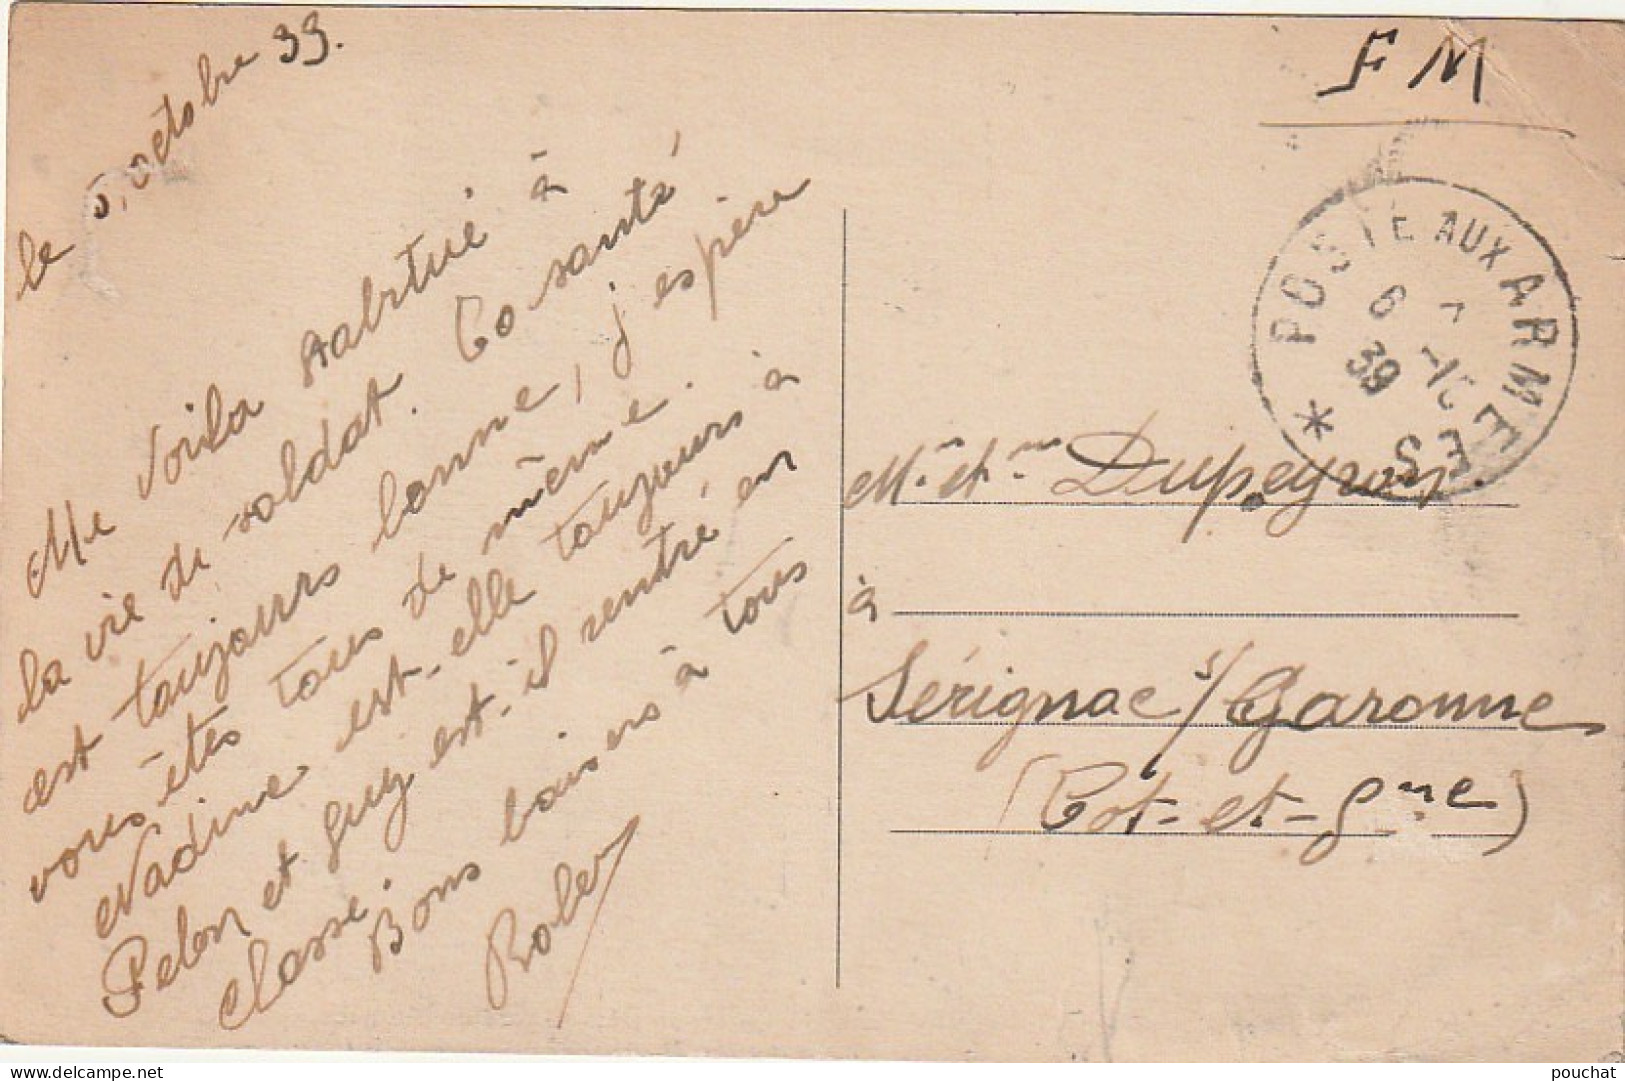 le 5, octobre 39.
Me voila habitué à
la vie de soldat. La santé
est toujours bonne, j'espère
vous êtes tous de même.
Nadine est-elle toujours à
et Guy est-il rentré en
classe.
Bons baisers à tous
Rober
F M
POSTE AUX ARMEES
6
39
Mr et Mme Dupeyron.
à
Sérignac s/Garonne
(Lot-et-Gne)
pouchat